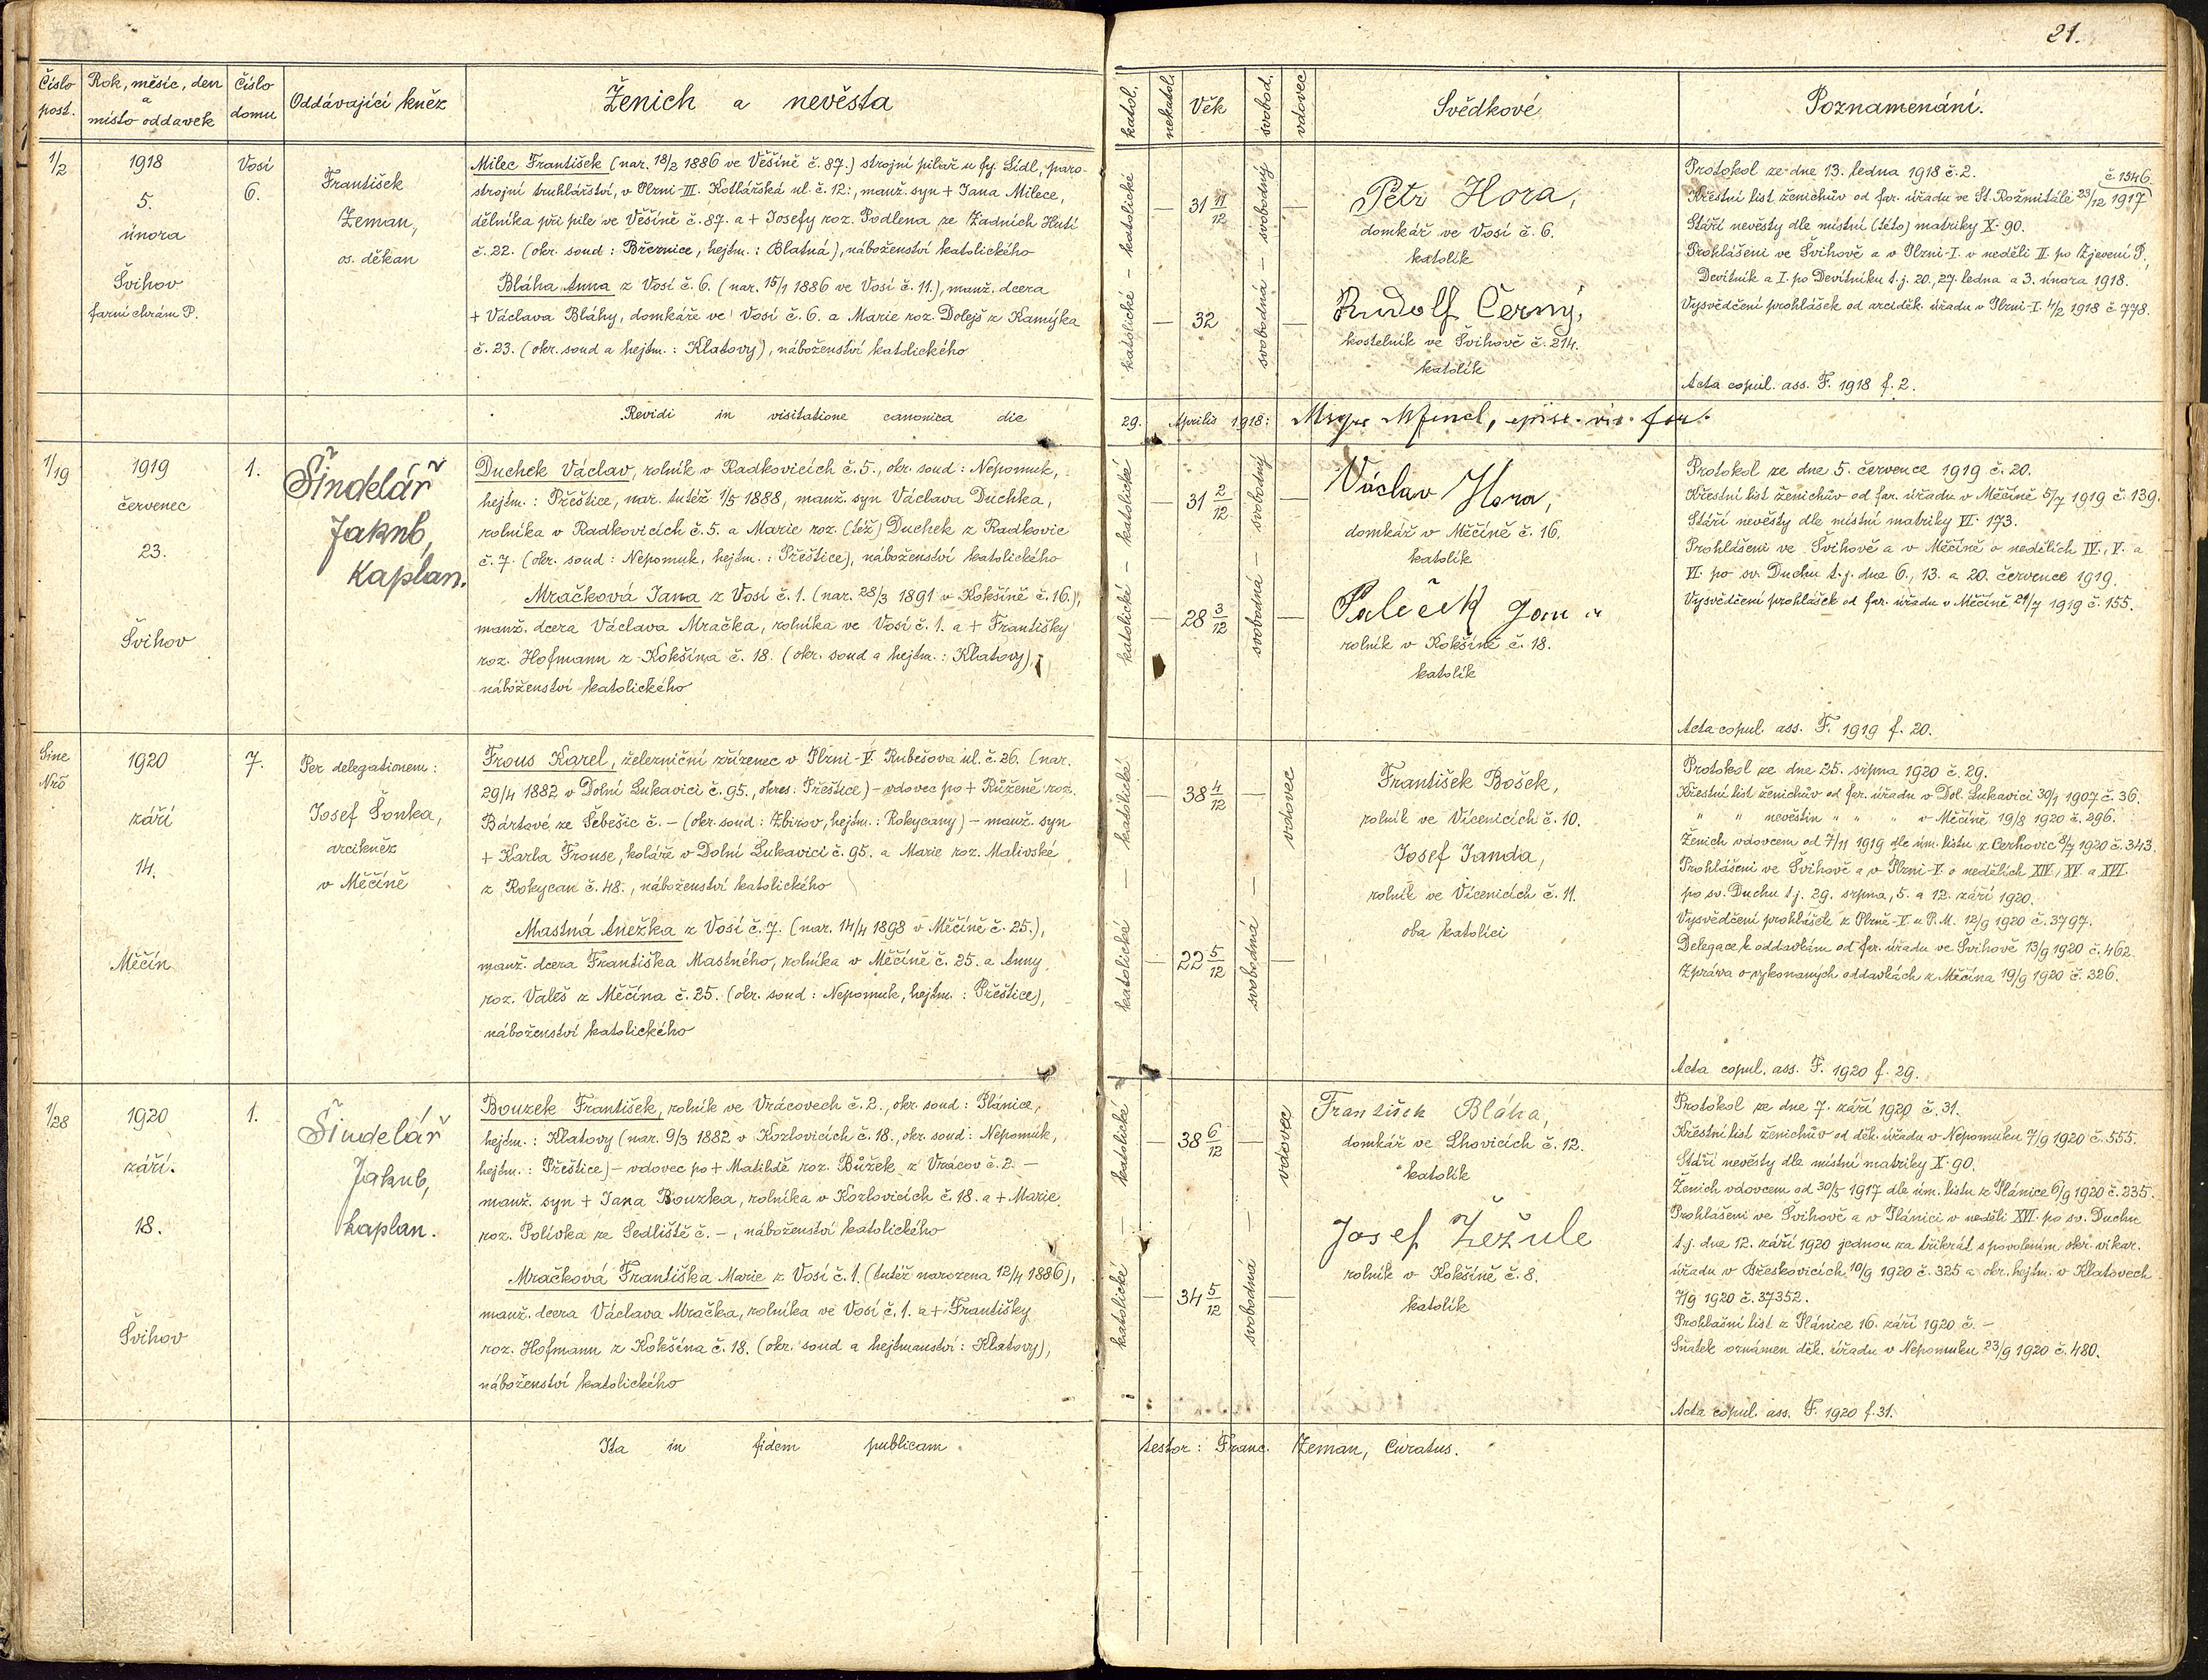 21.
Číslo post.
Rok, měsíc, den a místo oddavek
Číslo domu
Oddávající kněz
Ženich a nevěsta
katol.
nekatol.
Věk
svobod.
vdovec
Svědkové
Poznamenání.
1/2
1918
5.
února
Švihov
farní chrám P.
Vosí
6.
František
Zeman,
os. děkan
Milec František (nar. 18/2 1886 ve Věšíně č. 87.) strojní pilař u fy. Lídl, paro-
strojní truhlářství, v Plzni-III. Kotlářská ul. č. 12:, manž. syn + Jana Milece,
dělníka při pile ve Věšíně č. 87. a + Josefy roz. Podlena ze Zadních Hutí
č. 22. (okr. soud: Březnice, hejtm.: Blatná), náboženství katolického
Bláha Anna z Vosí č. 6. (nar. 15/1 1886 ve Vosí č. 11.), manž. dcera
+ Václava Bláhy, domkáře ve Vosí č. 6. a Marie roz. Dolejš z Kamýka
č. 23. (okr. soud a hejtm.: Klatovy), náboženství katolického
katolické – katolické
— 31 11/12
— 32
svobodná – svobodný
—
—
Petr Hora,
domkář ve Vosí č. 6.
katolík
Rudolf Černý,
kostelník ve Švihově č. 214.
katolík
Protokol ze dne 13. ledna 1918 č. 2.
č 1346
Křestní list ženichův od far. úřadu ve St. Rožmitále 23/12 1917
Stáří nevěsty dle místní (této) matriky X. 90.
Prohlášeni ve Švihově a v Plzni-I. v neděli II. po Zjevení P.,
Devítník a I. po Devítníku t. j. 20., 27. ledna a 3. února 1918.
Vysvědčení prohlášek od arciděk. úřadu v Plzni-I. 4/2 1918 č. 778.
Acta copul. ass. F. 1918 f. 2.
Revidi in visitatione canonica die 29. Aprilis 1918:
1/19
1919
červenec
23.
Švihov
1.
Šindelář
Jakub,
Kaplan.
Duchek Václav, rolník v Radkovicích č. 5., okr. soud: Nepomuk,
hejtm.: Přeštice, nar. tutéž 1/5 1888, manž. syn Václava Duchka,
rolníka v Radkovicích č. 5. a Marie roz. (též) Duchek z Radkovic
č. 7. (okr. soud: Nepomuk, hejtm.: Přeštice), náboženství katolického
Mračková Jana z Vosí č. 1. (nar. 28/3 1891 v Kokšíně č. 16.),
manž. dcera Václava Mračka, rolníka ve Vosí č. 1. a + Františky
roz. Hofmann z Kokšína č. 18. (okr. soud a hejtm.: Klatovy),
náboženství katolického
katolické – katolické
— 31 2/12
— 28 3/12
svobodná – svobodný
—
—
Václav Hora,
domkář v Měčíně č. 16.
katolík
Paleček Jan
rolník v Kokšíně č. 18.
katolík
Protokol ze dne 5. července 1919 č. 20.
Křestní list ženichův od far. úřadu v Měčíně 5/7 1919 č. 139.
Stáří nevěsty dle místní matriky VI. 173.
Prohlášeni ve Švihově a v Měčíně o nedělích IV., V. a
VI. po sv. Duchu t. j. dne 6., 13. a 20. července 1919.
Vysvědčení prohlášek od far. úřadu v Měčíně 21/7 1919 č. 155.
Acta copul. ass. F. 1919 f. 20.
Sine
Nrō
1920
září
14.
Měčín
7.
Per delegationem:
Josef Šonka,
arcikněz
v Měčíně
Frous Karel, železniční zřízenec v Plzni-V. Rubešova ul. č. 26. (nar.
29/4 1882 v Dolní Lukavici č. 95., okres: Přeštice) – vdovec po + Růženě roz.
Bártové ze Šebešic č. – (okr. soud: Zbirov, hejtm.: Rokycany) – manž. syn
+ Karla Frouse, koláře v Dolní Lukavici č. 95. a Marie roz. Malivské
z Rokycan č. 48., náboženství katolického
Mastná Anežka z Vosí č. 7. (nar. 14/4 1898 v Měčíně č. 25.),
manž. dcera Františka Mastného, rolníka v Měčíně č. 25. a Anny
roz. Valeš z Měčína č. 25. (okr. soud: Nepomuk, hejtm.: Přeštice),
náboženství katolického
katolické — katolické
— 38 4/12 —
— 22 5/12
svobodná —
vdovec
—
František Bošek,
rolník ve Vícenicích č. 10.
Josef Janda,
rolník ve Vícenicích č. 11.
oba katolíci
Protokol ze dne 25. srpna 1920 č. 29.
Křestní list ženichův od far. úřadu v Dol. Lukavici 30/1 1907 č. 36.
" " nevěstin " " " v Měčíně 19/8 1920 č. 296.
Ženich vdovcem od 7/11 1919 dle úm. listu z Cerhovic 8/7 1920 č. 343.
Prohlášeni ve Švihově a v Plzni-V. o nedělích XIV., XV. a XVI.
po sv. Duchu t. j. 29. srpna, 5. a 12. září 1920.
Vysvědčení prohlášek z Plzně-V. u P. M. 12/9 1920 č. 3797.
Delegace k oddavkám od far. úřadu ve Švihově 13/9 1920 č. 462.
Zpráva o vykonaných oddavkách z Měčína 19/9 1920 č. 326.
Acta copul. ass. F. 1920 f. 29.
1/28
1920
září.
18.
Švihov
1.
Šindelář
Jakub,
kaplan.
Bouzek František, rolník ve Vrácovech č. 2., okr. soud: Plánice,
hejtm.: Klatovy (nar. 9/3 1882 v Kozlovicích č. 18., okr. soud: Nepomuk,
hejtm.: Přeštice) – vdovec po + Matildě roz. Bůžek z Vrácov č. 2. –
manž. syn + Jana Bouzka, rolníka v Kozlovicích č 18. a + Marie
roz. Polívka ze Sedliště č. –, náboženství katolického
Mračková Františka Marie z Vosí č. 1. (tutéž narozena 12/4 1886),
manž. dcera Václava Mračka, rolníka ve Vosí č. 1. a + Františky
roz. Hofmann z Kokšína č. 18. (okr. soud a hejtmanství: Klatovy),
náboženství katolického
katolické — katolické
— 38 6/12 —
— 34 5/12
svobodná —
vdovec
—
František Bláha,
domkář ve Lhovicích č. 12.
katolík
Josef Žežule
rolník v Kokšíně č. 8.
katolík
Protokol ze dne 7. září 1920 č. 31.
Křestní list ženichův od děk. úřadu v Nepomuku 7/9 1920 č. 555.
Stáří nevěsty dle místní matriky X. 90.
Ženich vdovcem od 30/5 1917 dle úm. listu z Plánice 6/9 1920 č. 235.
Prohlášeni ve Švihově a v Plánici v neděli XVI. po sv. Duchu
t. j. dne 12. září 1920 jednou za třikrát s povolením okr. vikar.
úřadu v Břeskovicích 10/9 1920 č. 325 a okr. hejtm. v Klatovech
7/9 1920 č. 37352.
Prohlašní list z Plánice 16. září 1920 č. –
Sňatek oznámen děk. úřadu v Nepomuku 23/9 1920 č. 480.
Acta copul. ass. F. 1920 f. 31.
Ita in fidem publicam testor: Franc. Zeman, Curatus.